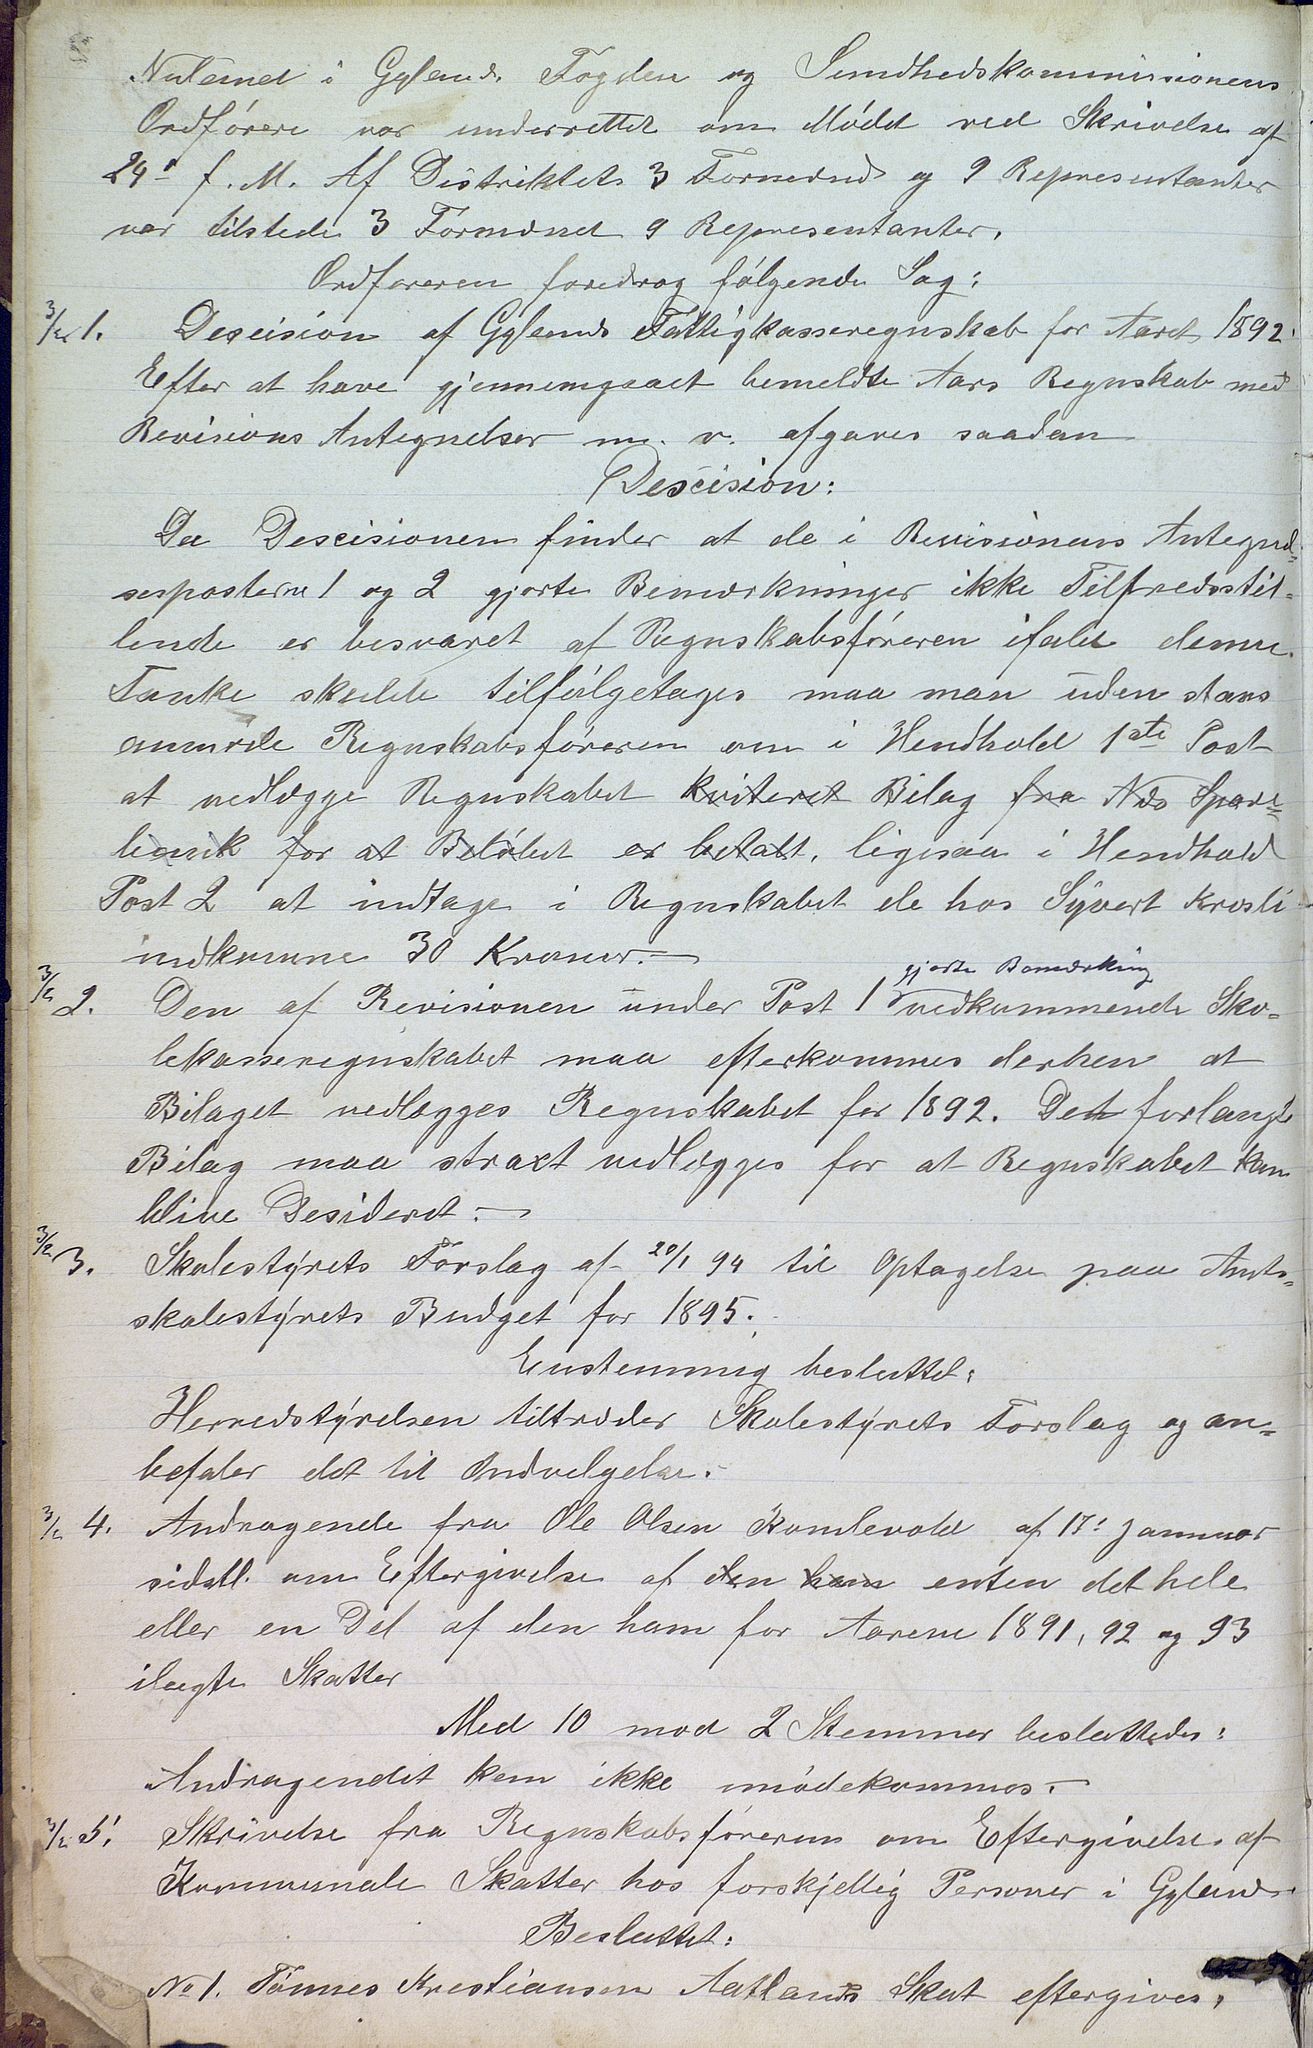 Nuland i Gyland. Fogden og Sundhedskommissionens
Ordförere var underrettet om Mödet ved Skrivelse af
24' f. M. Af Distriktets 3 Formænd og 9 Representanter
var tilstede 3 Formænd 9 Representanter.
Ordføreren foredrog fölgende Sag:
3/2 1. Descision af Gylands Fattigkasseregnskab for Aaret 1892.
Efter at have gjennemgaaet bemeldte Aars Regnskab med
Revisions Antegnelser m. v. afgaves saadan
Descision:
Da Descisionen finder at de i Revisionens Antegnel=
sesposterne 1 og 2 gjorte Bemærkninger ikke Tilfredsstil-
lende er besvaret af Regnskabsföreren ifald denne
Tanke skulde tilfölgetages maa man uden stans
anmode Regnskabsföreren om i Hendhold 1ste Post
at vedlægge Regnskabet kviteret Bilag fra Aas Spare=
bank for at Belöbet er betalt, ligesaa i Hendhold
Post 2 at indtage i Regnskabet de hos Syvert Krosli
indkomne 30 Kroner.—
gjorte Bemærkning
3/2 2. Den af Revisionen under Post 1 vedkommende Sko-
lekasseregnskabet maa efterkommes derhen at
Bilaget vedlægges Regnskabet for 1892. Det forlangte
Bilag maa straxt vedlægges for at Regnskabet kan
blive Desideret.—
3/2 3. Skolestyrets Forslag af 20/1 94 til Optagelse paa Amts=
skolestyrets Budget for 1895.
Enstemmig besluttet:
Herredstyrelsen tiltræder Skolestyrets Forslag og an=
befaler det til Indvilgelse.
3/2 4. Andragende fra Ole Olsen Kumlevold af 17' Januar
sidstl. om Eftergivelse af den ham enten det hele
eller en Del af den ham for Aarene 1891, 92 og 93
ilagte Skatter
Med 10 mod 2 Stemmer besluttedes:
Andragendet kan ikke imödekommes.—
3/2 5. Skrivelse fra Regnskabsföreren om Eftergivelse af
Kommunale Skatter hos forskjellig Personer i Gyland.
Besluttet:
No 1. Tönnes Kristiansen Aatlands Skat eftergives.